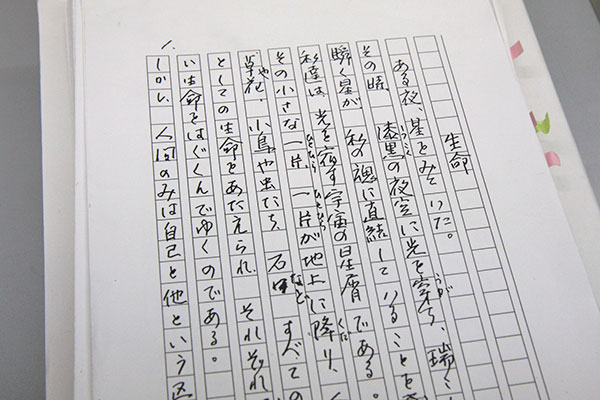 1.
生命
ある夜、星をみていた。
その時、漆黒の夜空に光を穿ち、瑞々
瞬く星が、私の魂に直結していることを
私達は、光を宿す宇宙の星屑である。
その小さな一片、一片が地上に降り、
草花や、小鳥や虫たち、石などすべての
としての生命をあたえられ、それぞれ
い生命をはぐくんでゆくのである。
しかし、人間のみは自己と他という区